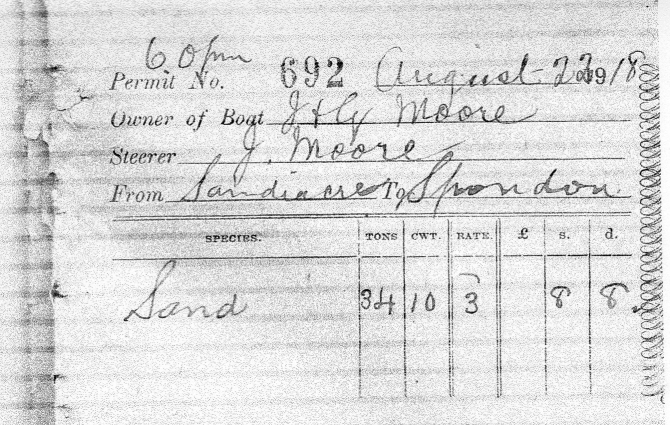 6 0 pm
Permit No. 692 August 22 1918
Owner of Boat J & G Moore
Steerer J. Moore
From Sandiacre To Spondon
SPECIES. TONS CWT. RATE. £ s. d.
Sand 34 10 3 8 8